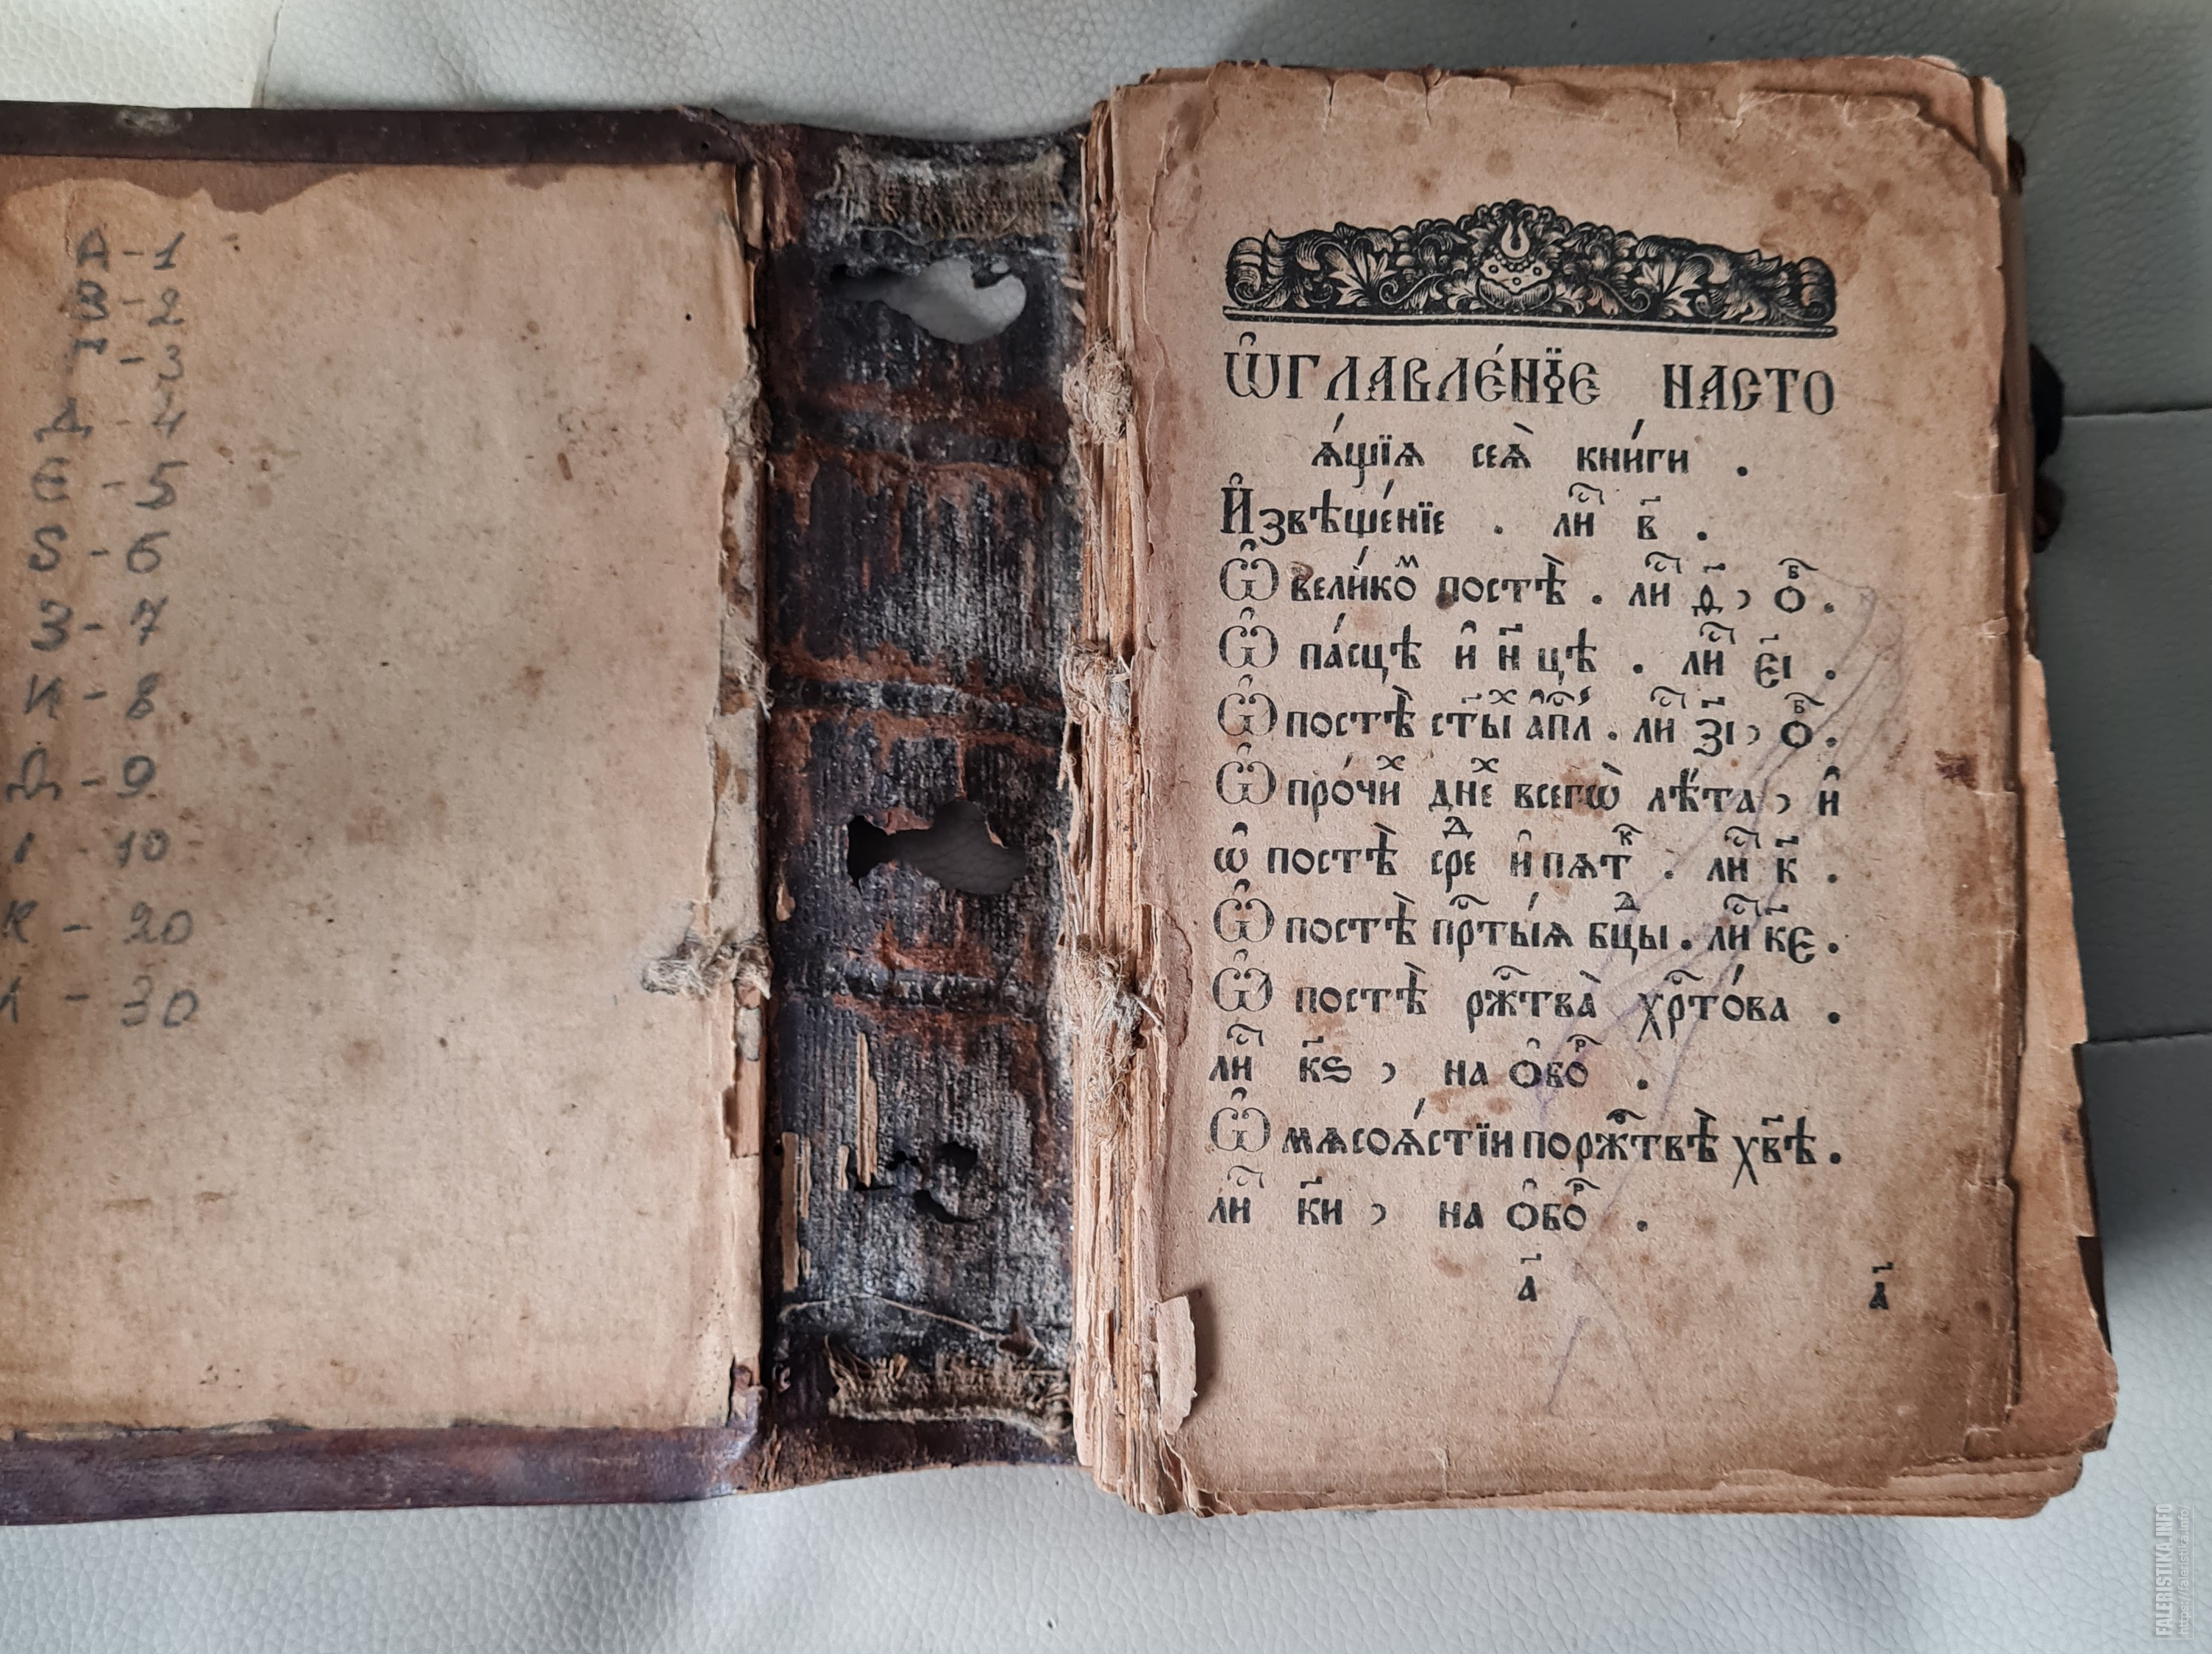 А - 1
В - 2
Г - 3
Д - 4
Е - 5
Ѕ - 6
З - 7
И - 8
Ѳ - 9
І - 10
К - 20
Л - 30
Ѡ҆главле́нїе насто
ѧ́щїѧ сеѧ̀ кни́ги .
И҆звѣще́нїе . лиⷭ҇ в҃ .
Ѽ вели́коⷨ постѣ̀ . лиⷭ҇ д҃ , ѻⷠ҇ .
Ѽ па́сцѣ и҆ н҃цѣ . лиⷭ҇ є҃і .
Ѽ постѣ̀ ст҃ыⷯ а҆пⷭ҇л . лиⷭ҇ з҃і , ѻⷠ҇ .
Ѽ про́чиⷯ днеⷯ всегѡ̀ лѣ́та , и҆
ѡ҆ постѣ̀ среⷣ и҆ пѧтⷦ҇ . лиⷭ҇ к҃ .
Ѽ постѣ̀ прⷭ҇ты́ѧ бцⷣы . лиⷭ҇ к҃є .
Ѽ постѣ̀ ржⷭ҇тва̀ хрⷭ҇то́ва .
лиⷭ҇ к҃ѕ , на ѻ҆боⷬ҇ .
Ѽ мѧсоѧ́стїи по ржⷭ҇твѣ̀ хв҃ѣ .
лиⷭ҇ к҃и , на ѻ҆боⷬ҇ .
а҃ а҃
FALERISTIKA.INFO
https://faleristika.info/